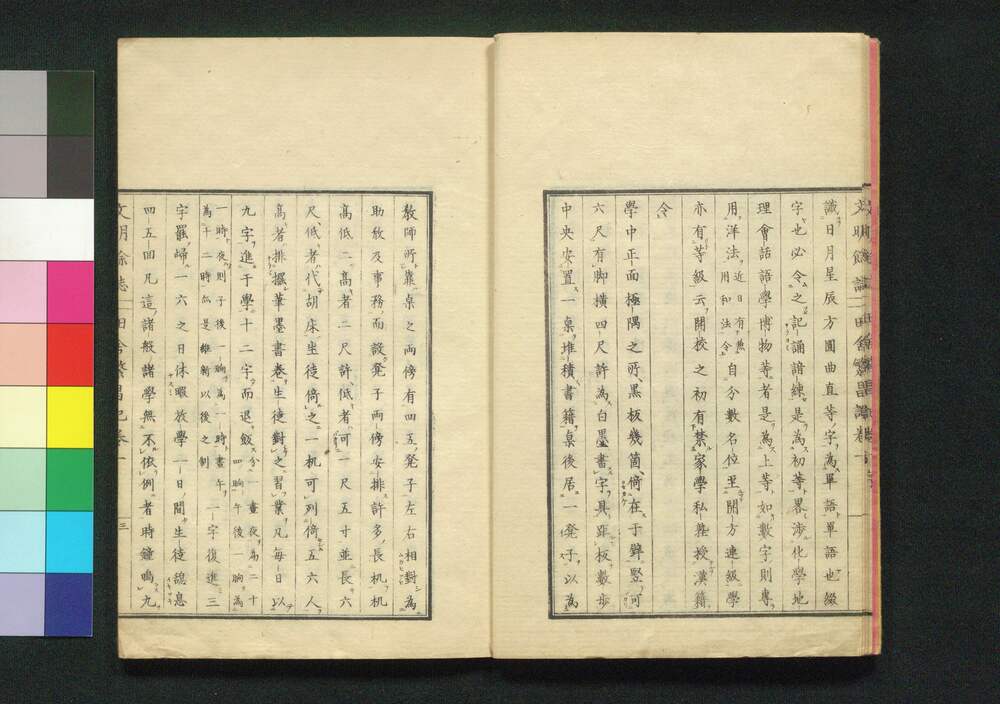 識日月星辰方圓曲直等字為單語單語也綴
字也必令之記誦諳練是為初等畧渉化學地
理會話語學博物等者是為上等如數字則專
用洋法近日有兼用和法令自分數名位至開方連級學
亦有等級云開校之初有禁家學私塾授漢籍
令
學中正面極隅之所黒板幾箇倚在于壁竪可
六尺有脚横四尺許為白墨書字具距板數歩
中央安置一桌堆積書籍桌後居一凳子以為
教師所靠桌之両傍有四五凳子左右相對為
助敎及事務而設凳子両傍安排許多長机机
髙低二髙者二尺許低者可一尺五寸並長六
尺低者代胡床坐徒倚之一机可列倚五六人
髙者排擺筆墨書巻生徒對之習業凡毎日以
九字進于學十二字而退飯分一晝夜為二十四晌午後一晌為
一時夜則子後一晌為一時晝午為十二時仍是維新以後之制一字復進三
字罷歸一六之日休暇放學一日間生徒憩息
四五回凡這諸般諸學無不依例者時鐘鳴九
文明餘誌 田舎繁昌記巻一 三